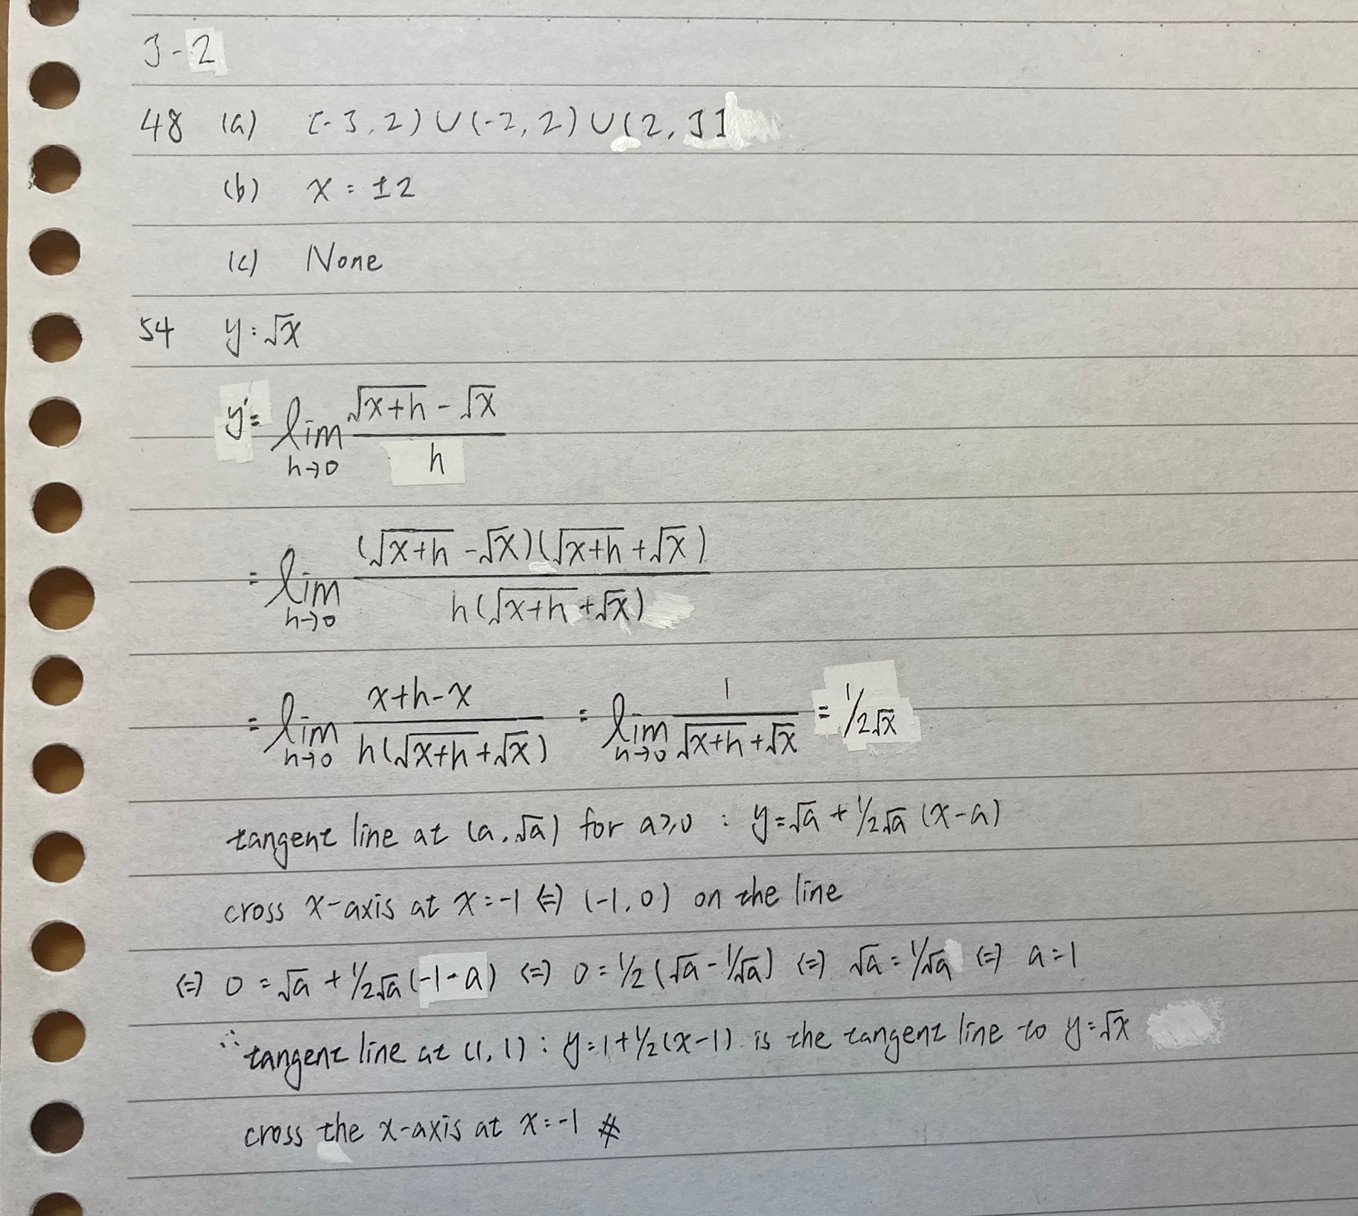 3-2
48 (a) [-3, 2) ∪ (-2, 2) ∪ (2, 3]
(b) x = ±2
(c) None
54 y = √x
y' = lim h→0 (√(x+h) - √x) / h
= lim h→0 (√(x+h) - √x)(√(x+h) + √x) / h(√(x+h) + √x)
= lim h→0 (x+h-x) / h(√(x+h) + √x) = lim h→0 1 / (√(x+h) + √x) = 1/2√x
tangent line at (a, √a) for a≥0 : y = √a + 1/2√a (x-a)
cross x-axis at x = -1 ⇔ (-1, 0) on the line
⇔ 0 = √a + 1/2√a (-1-a) ⇔ 0 = 1/2 (√a - 1/√a) ⇔ √a = 1/√a ⇔ a = 1
∴ tangent line at (1, 1) : y = 1 + 1/2(x-1) is the tangent line to y = √x
cross the x-axis at x = -1 #